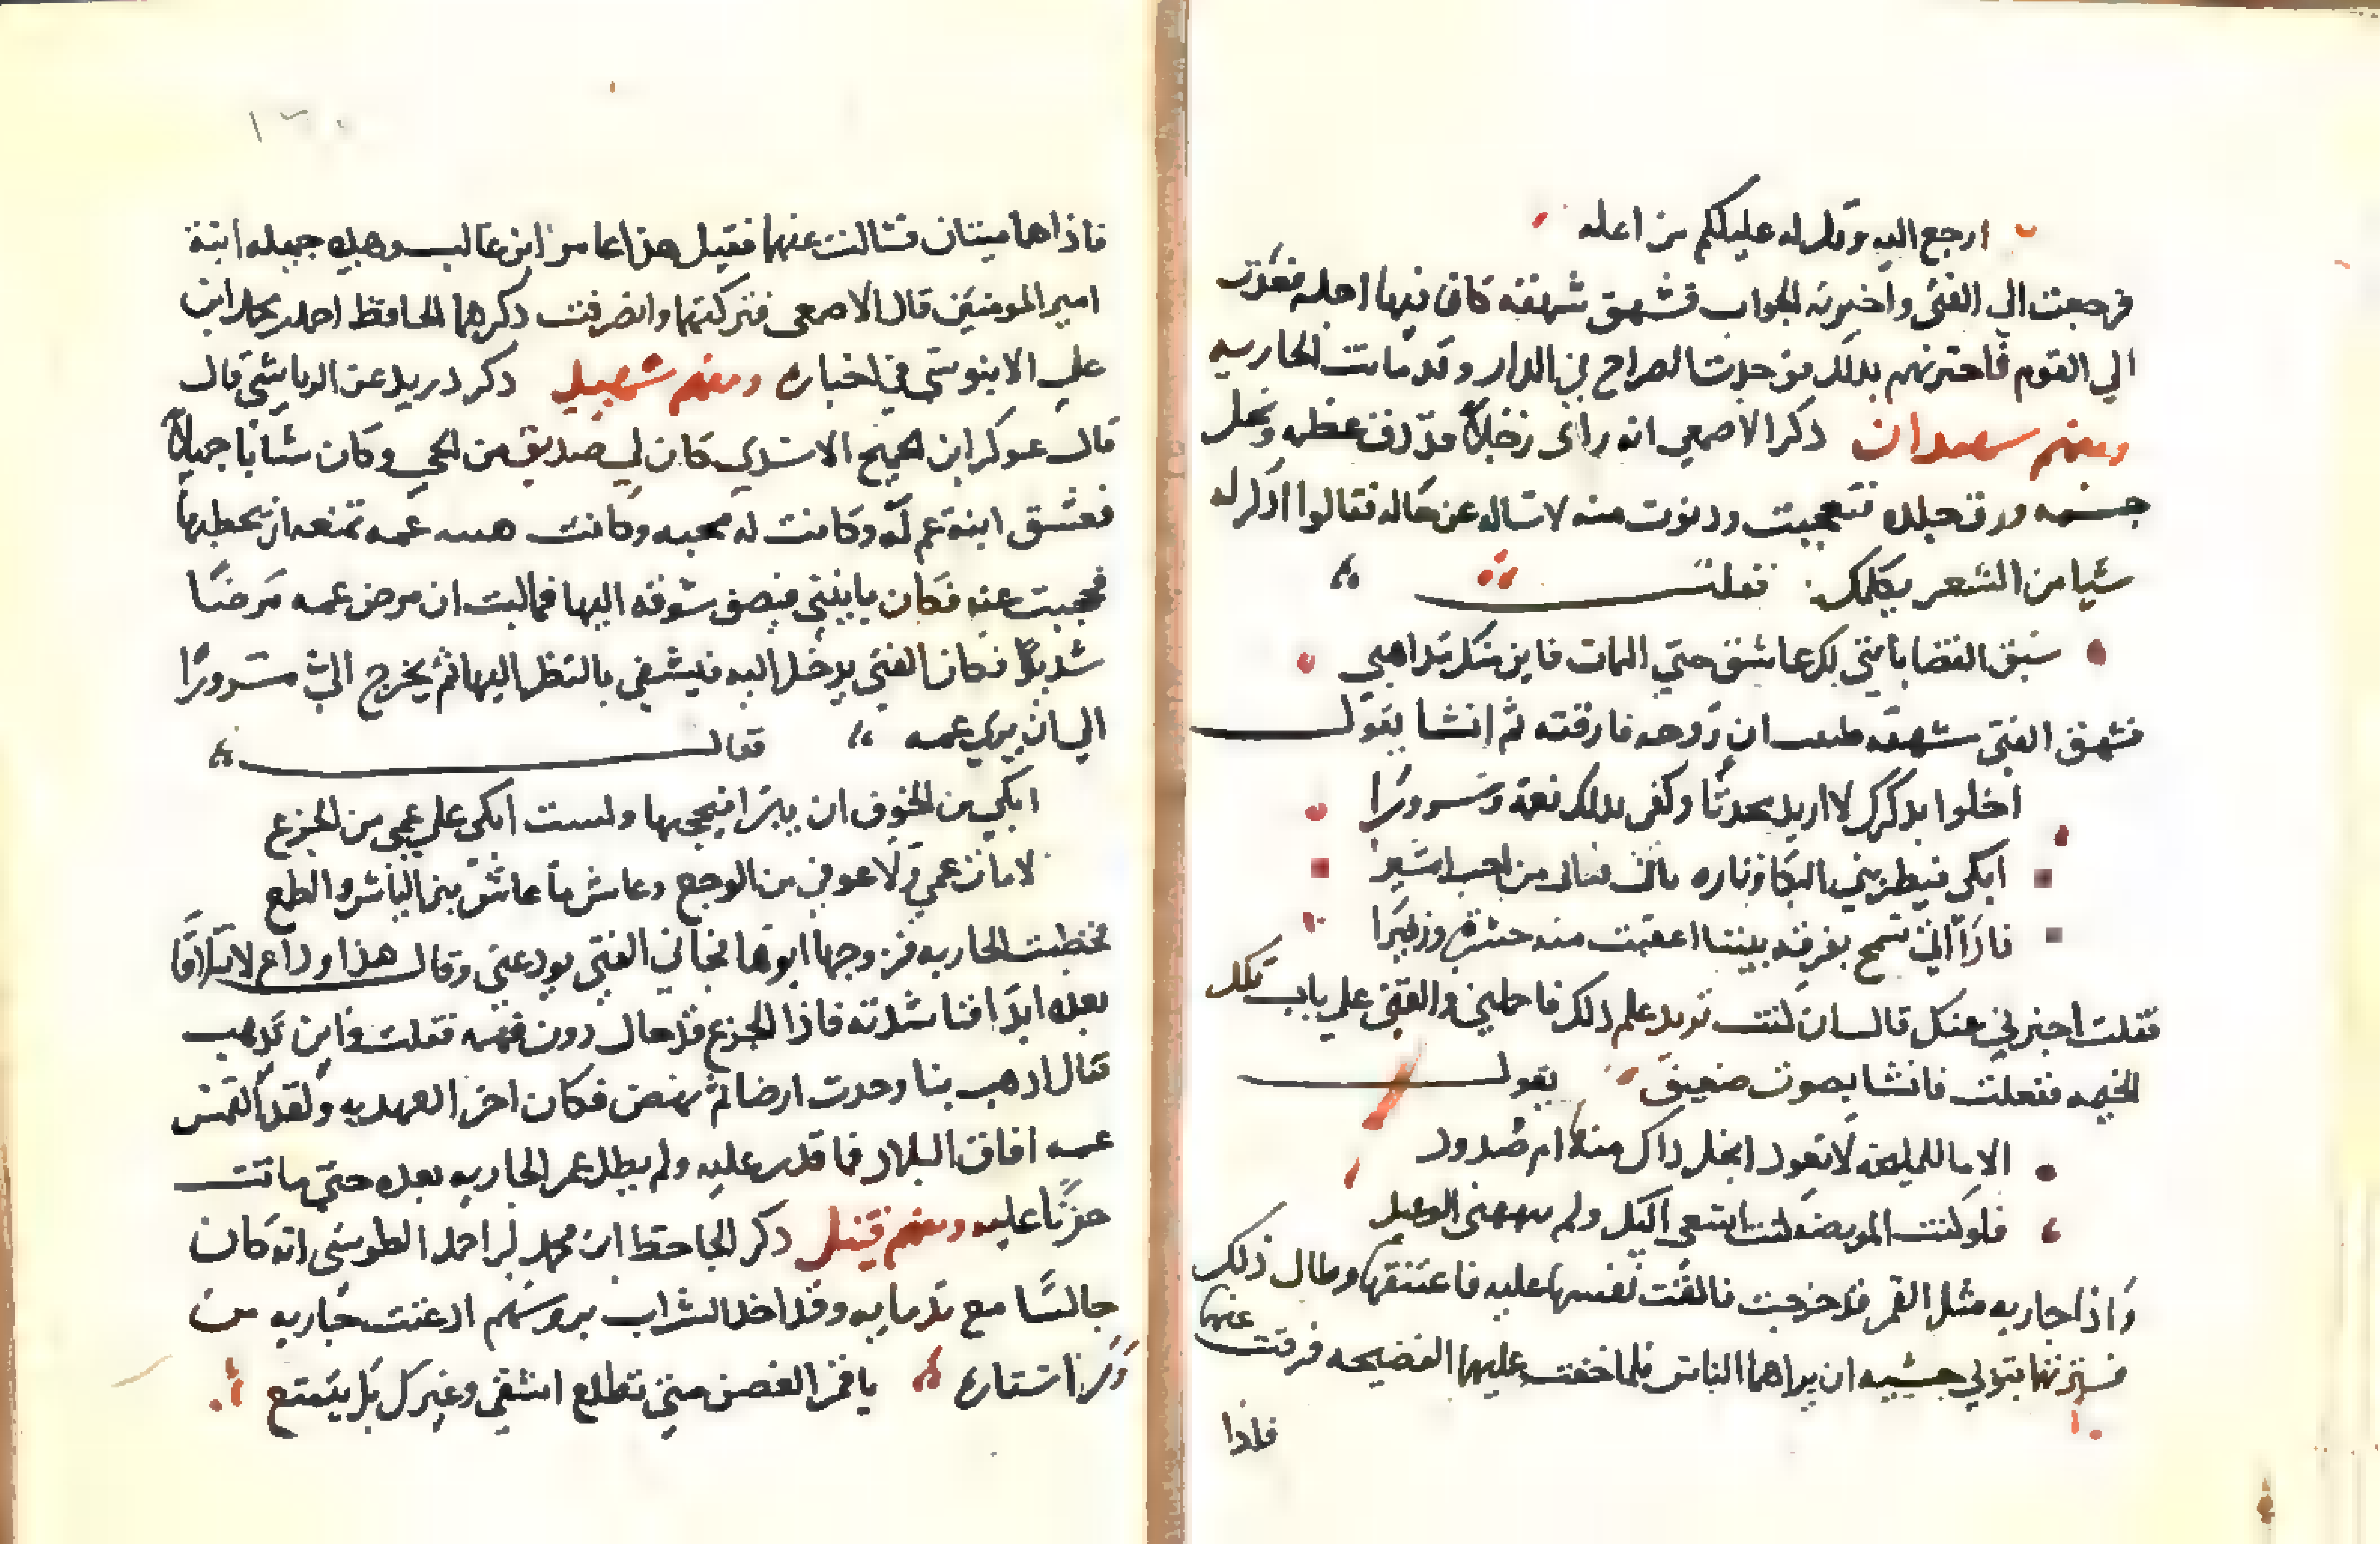 ارجع اليه وقل له عليكم من اعله
فرجعت الي الفتى واخبرته الجواب فشهق شهقه كان فيها اجله فعدت
الي القوم فاخبرتهم بذلك من حدث الصراخ في الدار وقد ماتت الجاريه
ومنهم سعدان ذكر الاصمعي انه راى رجلا قد دق عظمه ونحل
جسمه ورق جلده فتعجبت ودنوت منه لاساله عن حاله فقالوا اذكر له
شيا من الشعر يكلمك فقلت
سبق القضا بانني لك عاشق حتي الممات فاين منك مذاهبي
فشهق الفتى شهقه ظننت ان روحه فارقته ثم انشا يقول
اخلوا بذكرك لا اريد محدثا وكفى بذلك نعمة وسرورا
ابكي فيطربني البكا وتاره
فاذا اتي سمح بفرقه بيننا اعقبت منه حسرة وزفيرا
فقلت اخبرني عنك قال ان كنت تريد علم ذلك فاحملني والقني على باب تلك
الخيمه ففعلت فانشا بصوت ضعيف يقول
الا ما للمليحة لا تعود ابخل ذاك منها ام صدود
فلو كنت المريضة كنت اسعى اليك ولم ينهنهني الوعيد
واذا جاريه مثل القمر قد خرجت فالقت نفسها عليه فاعتنقها وطال ذلك
فسترتها بثوبي خشيه ان يراهما الناس فلما خفت عليهما الفضيحه فرقت عنها
فاذا
١٦٠
فاذا هما ميتان فسالت عنهما فقيل هذا عامر ابن غالب وهذه جميله ابنة
امير المومنين قال الاصمعي فتركتهما وانصرفت ذكرهما الحافظ احمد بن ابن
علي الابنوسي في اخباره ومنهم شهيد ذكر دريد عن الرياشي قال
قال ابن الاسدي كان لي صديق من الحي وكان شابا جميلا
فعشق ابنة عم له وكانت له محبه وكانت عمه تمنعه ان يخطبها
فحجبت عنه فكان ياتيني فيصف شوقه اليها فما لبث ان مرض عمه مرضا
شديدا فكان الفتي يدخل اليه فيشفي بالنظر اليها ثم يخرج الي مسرورا
الي ان بري عمه فقال
ابكي من الخوف ان يبرا فيحجبها ولست ابكي على عمي من الجزع
لا مات عمي ولا عوفي من الوجع وعاش ما عاش بين الياس والطمع
فخطبت الجاريه فزوجها ابوها فجاني الفتي يودعني وقال هذا وداع لا تلاقا
بعده ابدا فناشدته فاذا الجزع قد حال دون فهمه فقلت واين تذهب
قال اذهب بنا وجدت ارضا ثم نهض فكان اخر العهد به ولقد التمس
عمه افاق البلاد فما قدر عليه ولم يطل عمر الجاريه بعده حتي ماتت
حزنا عليه ومنهم ذكر الحافظ ابن محمد بن احمد الطوسي انه كان
جالسا مع ندمايه وقد اخذ الشراب بروسهم اذ غنت جاريه من
ورا ستاره يا قمر الغصن متي تطلع اشقى وغيرك بك يتمتع